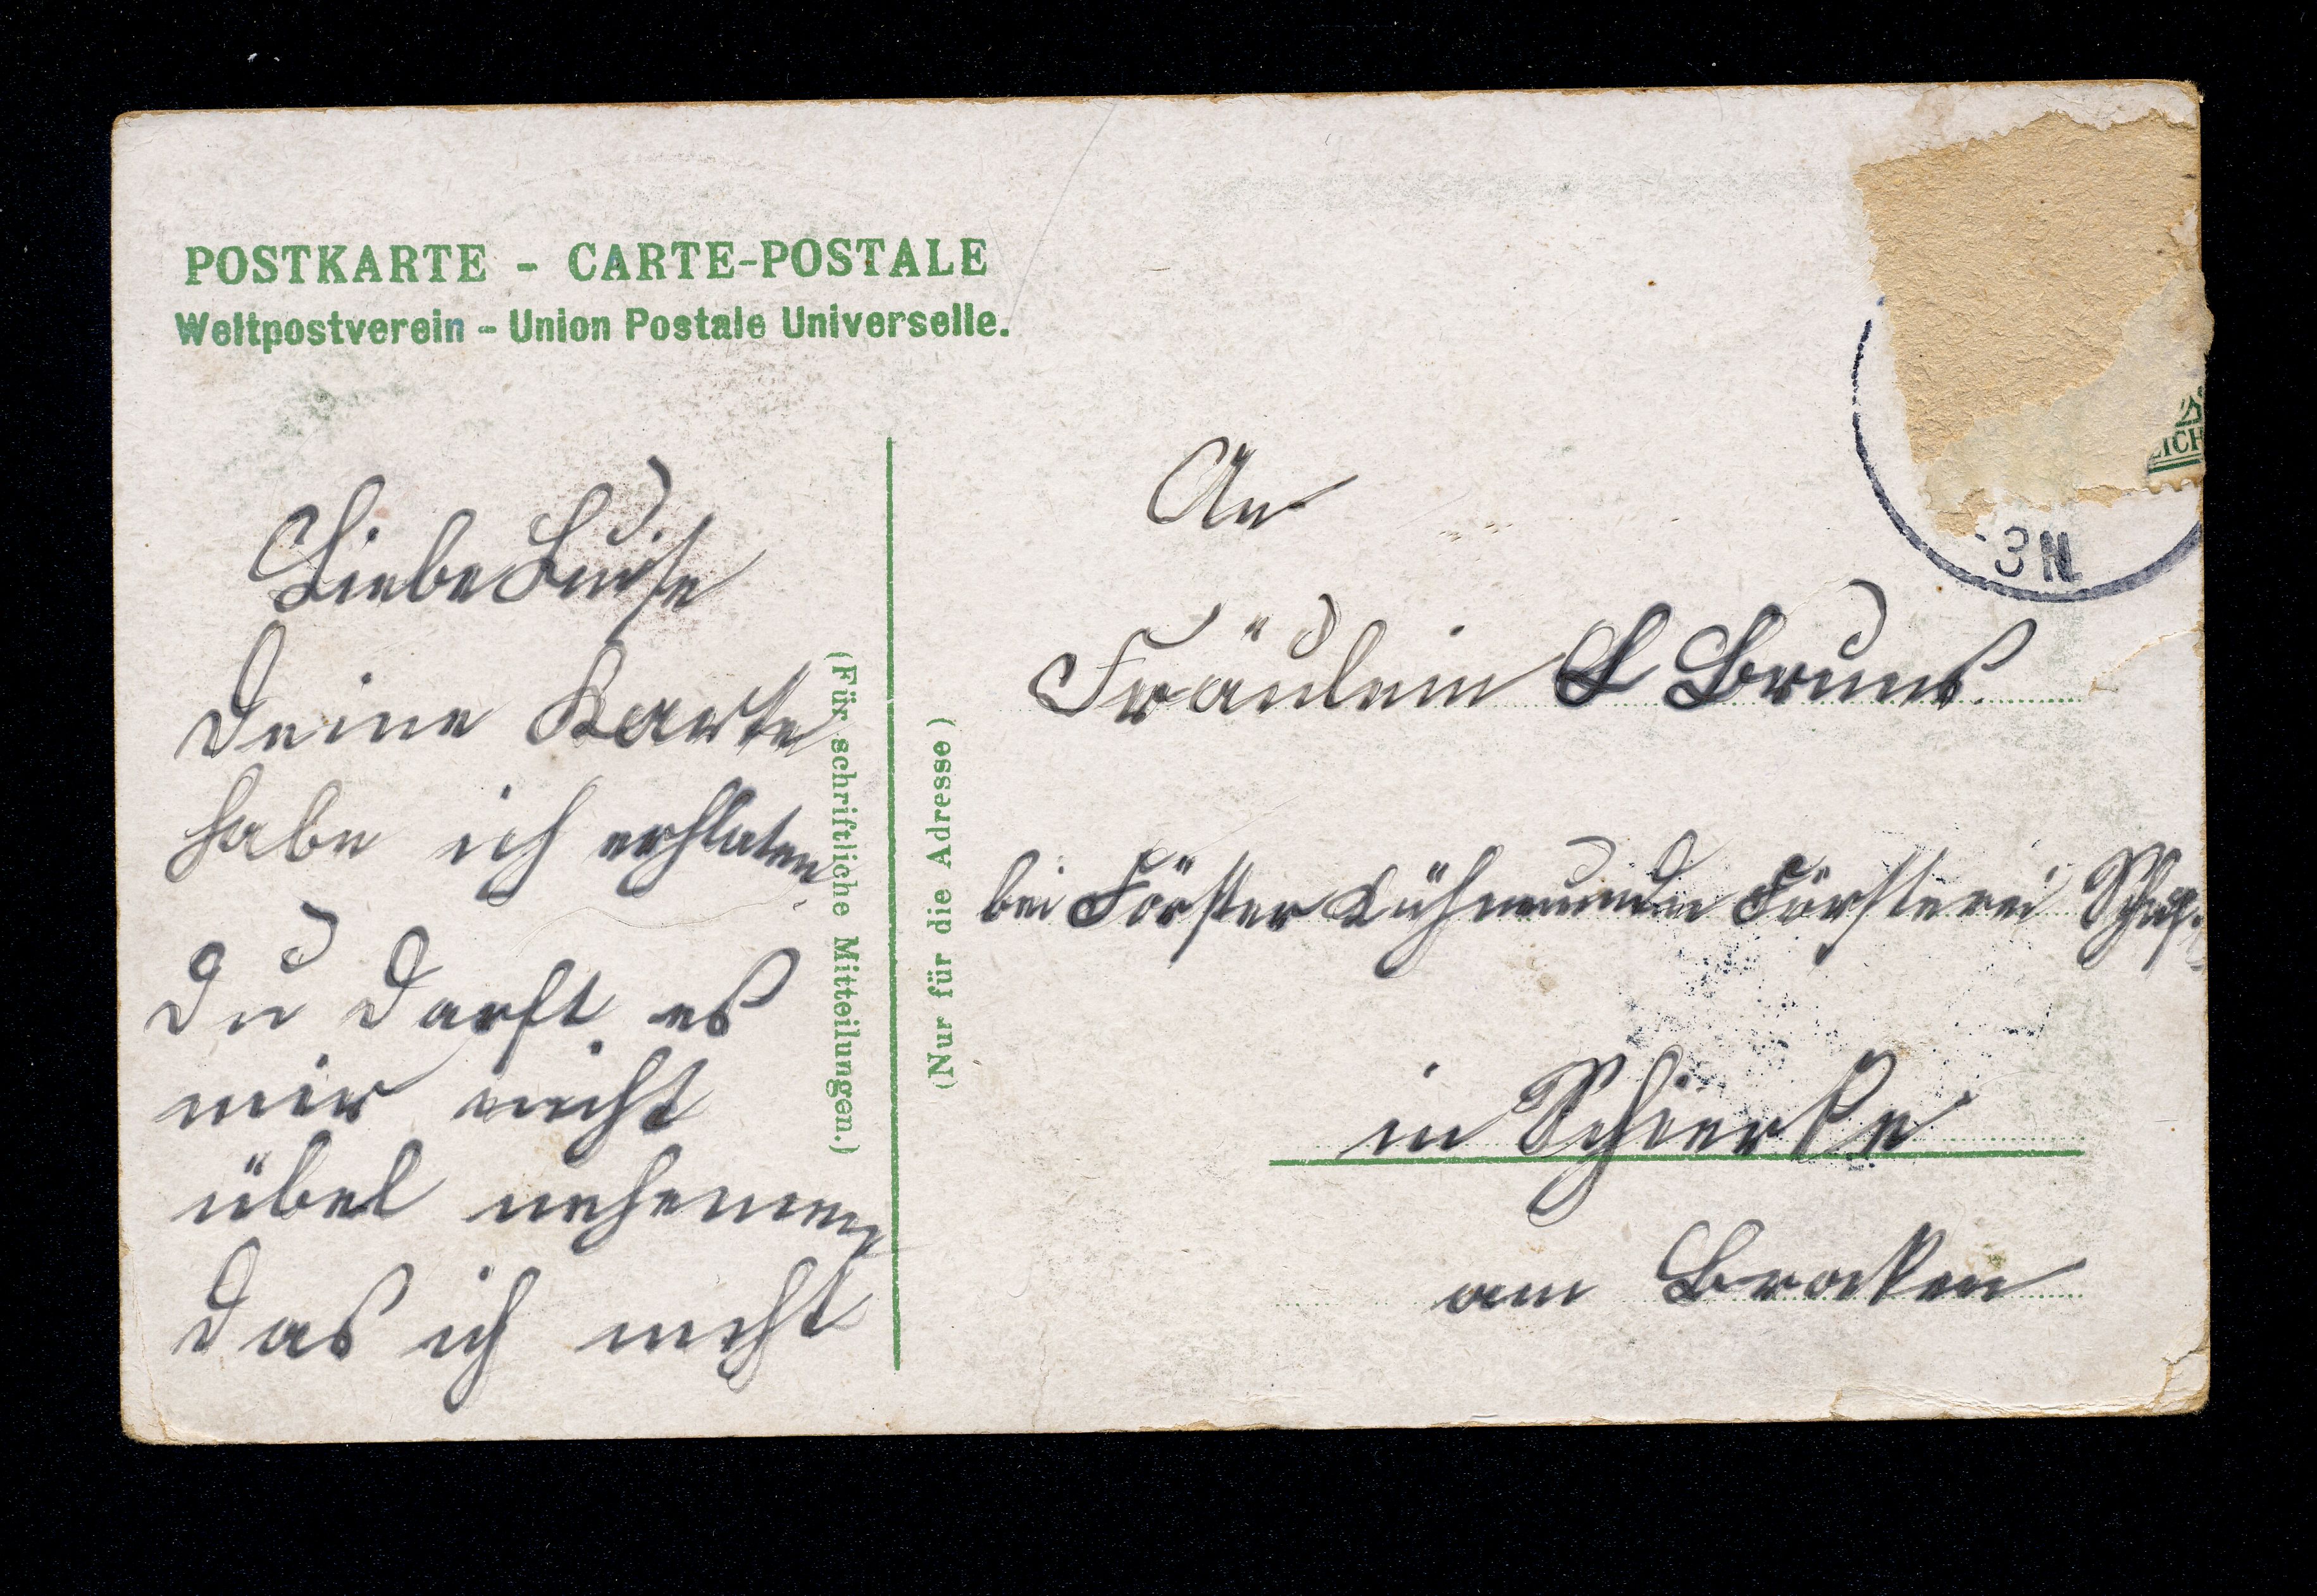 POSTKARTE - CARTE-POSTALE
Weltpostverein - Union Postale Universelle.
Liebe Luise
Deine Karte
habe ich erhlaten
Du darfst es
mir nicht
übel nehemen
das ich nicht
(Für schriftliche Mitteilungen.)
(Nur für die Adresse)
3N
An
Fräulein L Bruns.
bei Förster Kühne Försterei
in Schierke
am Brocken